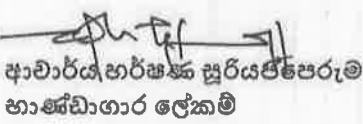 ආචාර්ය හර්ෂණ සූරියප්පෙරුම
භාණ්ඩාගාර ලේකම්